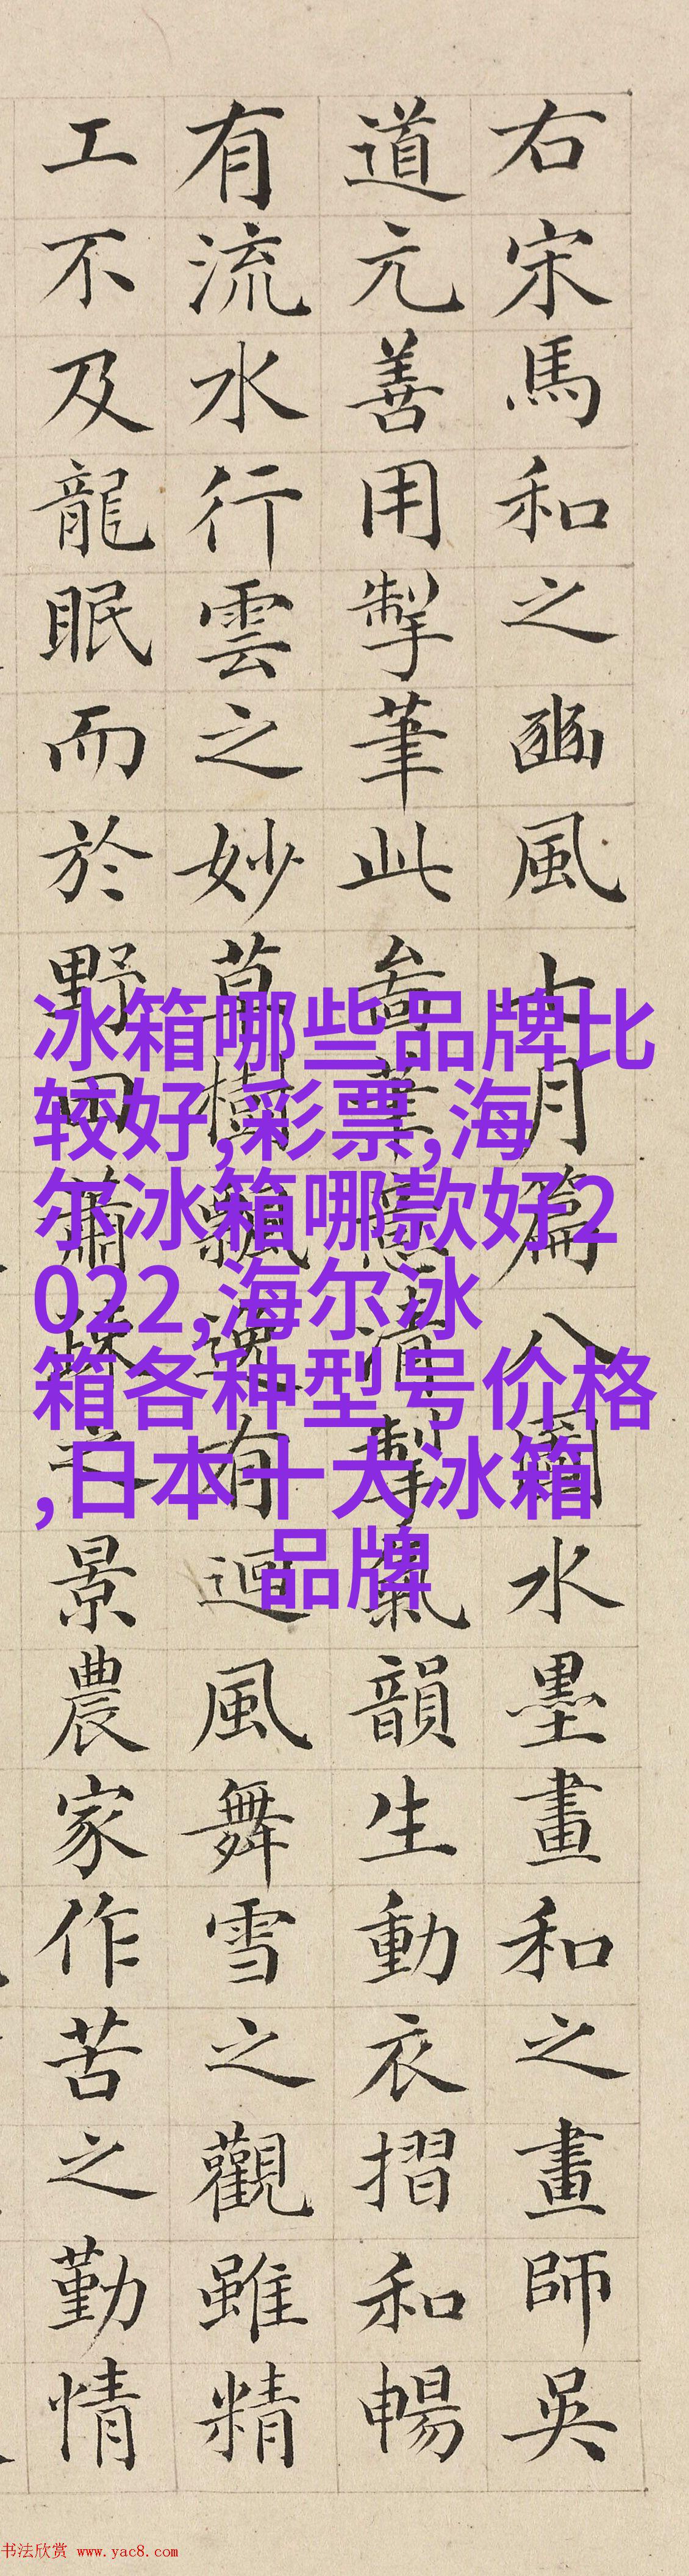 右宋馬和之豳風七月篇八圖水墨畫和之畫師吳
道元善用掣筆此啚筆意清掣氣韻生動衣摺和暢
有流水行雲之妙草樹飄逸有迴風舞雪之觀雖精
工不及龍眠而於野田蕭疎之景農家作苦之勤情
冰箱哪些品牌比
较好,彩票,海
尔冰箱哪款好2
022,海尔冰
箱各种型号价格
,日本十大冰箱
品牌
书法欣赏 www.yac8.com